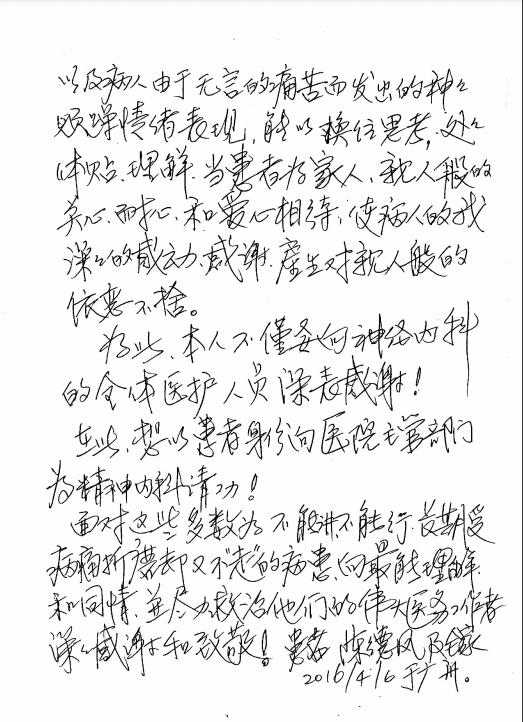 以及病人由于无言的痛苦而发出的种々
烦躁情绪表现,能以换位思考,处々
体贴、理解、当患者为家人、親人般的
关心、耐心、和爱心相待,使病人的我
深々的感动、感谢、産生对親人般的
依恋不捨。
为此、本人不僅要向神经内科
的全体医护人员深表感谢!
在此,想以患者身份向医院主管部门
为精神内科请功!
面对这些多数为不能讲不能行、长期受
病痛折磨却又不起的病患,向最能理解、
和同情、並尽力救治他们的伟大医务工作者
深々感谢和致敬!患者 陈德风及家
2016/4/6 于广州。